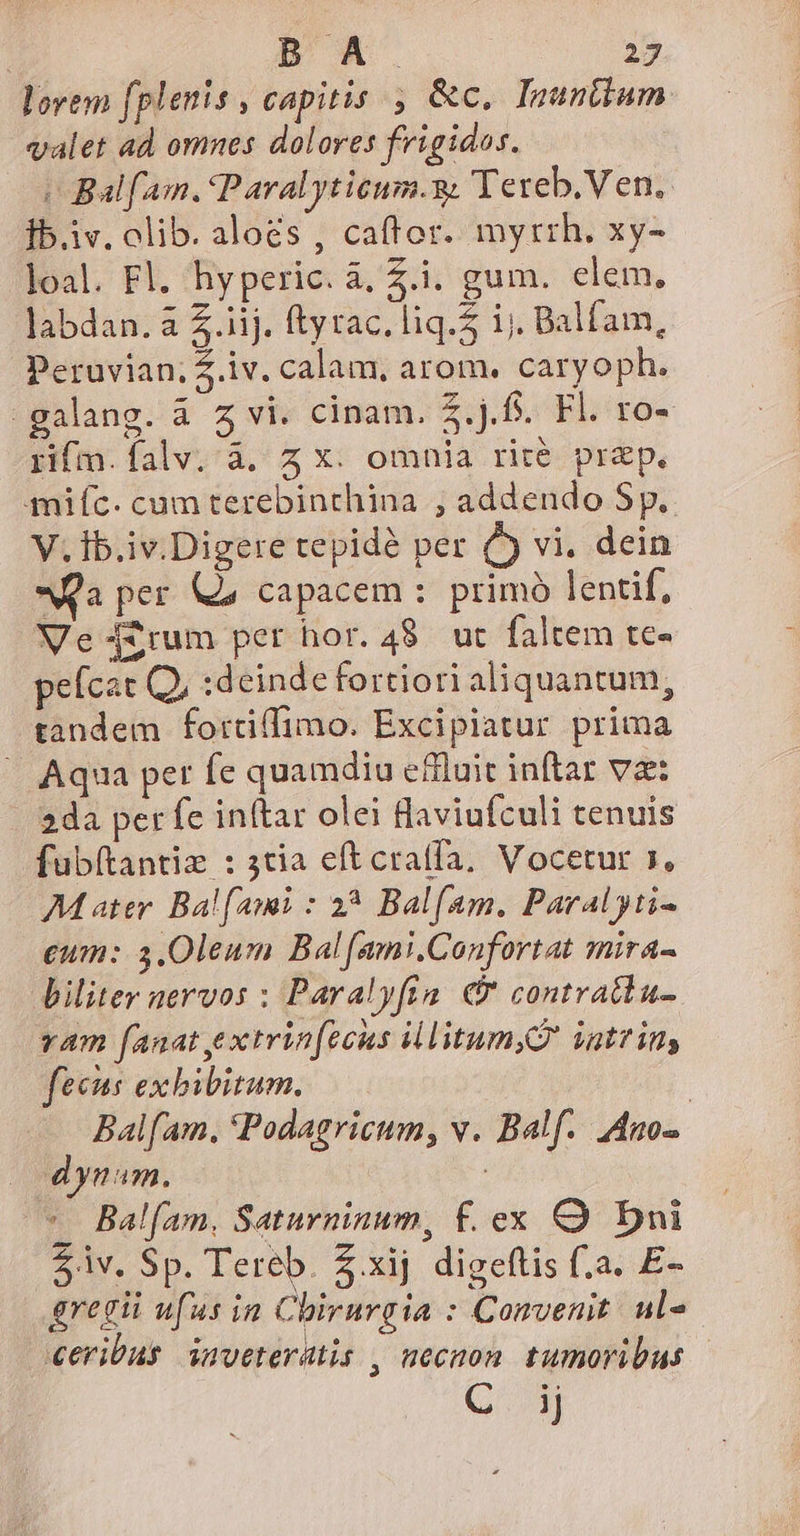 B A 27
lorem ſplenis , capitis , &c. Inunctum
valet ad omnes dolores frigidos.
Balſam. Paralyticum. ℞. Tereb. Ven.
℔.iv. olib. aloës , caſtor. myrrh. xy-
loal. Fl. hyperic. ā. ℥.i. gum. elem.
labdan. ā ℥.iij. ſtyrac. liq. ℥ ij. Balſam,
Peruvian. ℥.iv. calam. arom. caryoph.
galang. ā ʒ vi. cinam. ℥.j.ß. Fl. ro-
riſm. ſalv. ā. ʒ x. omnia ritè præp.
miſc. cum terebinthina , addendo Sp.
V. ℔.iv. Digere tepidè per vi. dein
a per capacem : primò lentiſ,
Ve rum per hor. 48 ut ſaltem te-
peſcat : deinde fortiori aliquantum,
tandem fortiſſimo. Excipiatur prima
Aqua per ſe quamdiu effluit inſtar væ:
2da per ſe inſtar olei flaviuſculi tenuis
ſubſtantiæ : 3tia eſt craſſa. Vocetur 1.
Mater Balſami : 2ª Balſam. Paralyti-
cum: 3. Oleum Balſami. Confortat mira-
biliter nervos : Paralyſin & contractu-
ram ſanat, extrinſecùs illitum, & intrin,
ſecus exhibitum.
Balſam. Podagricum, v. Balſ. Ano-
dynum.
Balſam. Saturninum, f. ex ♄ni
℥iv. Sp. Tereb. ℥.xij digeſtis ſ.a. E-
gregii uſus in Chirurgia : Convenit ul-
ceribus inveteratis , necnon tumoribus
C ij